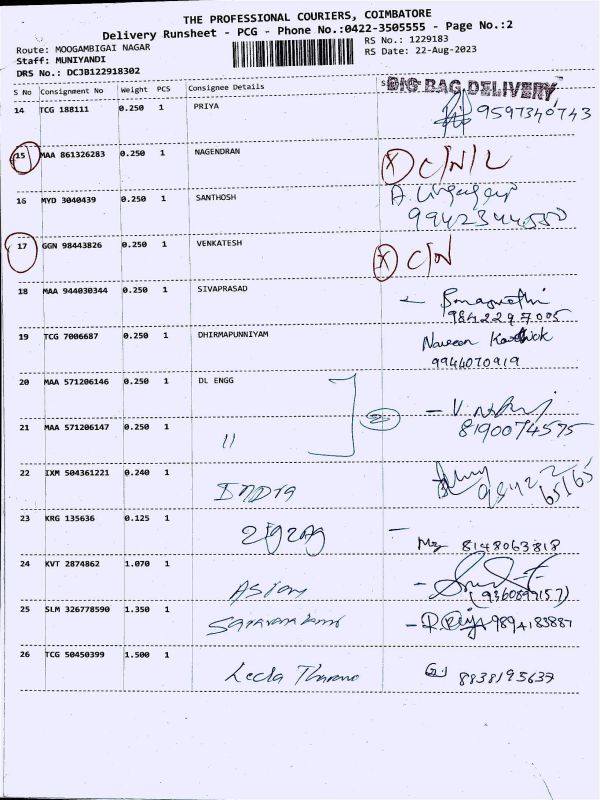 THE PROFESSIONAL COURIERS, COIMBATORE
Delivery Runsheet - PCG - Phone No.:0422-3505555 - Page No.:2
Route: MOOGAMBIGAI NAGAR RS No.: 1229183
Staff: MUNIYANDI RS Date: 22-Aug-2023
DRS No.: DCJB122918302
S No Consignment No Weight PCS Consignee Details S BIG BAG DELIVERY
14 TCG 188111 0.250 1 PRIYA 9597340743
15 MAA 861326283 0.250 1 NAGENDRAN X C/N/L
16 MYD 3040439 0.250 1 SANTHOSH A.
17 GGN 98443826 0.250 1 VENKATESH X C/N
18 MAA 944030344 0.250 1 SIVAPRASAD
9842297005
19 TCG 7006687 0.250 1 DHIRMAPUNNIYAM Naveen Karthick
9944070919
20 MAA 571206146 0.250 1 DL ENGG
21 MAA 571206147 0.250 1 " 2 8190074575
22 IXM 504361221 0.240 1 INDIA
23 KRG 135636 0.125 1 zigzag 8148063818
24 KVT 2874862 1.070 1
25 SLM 326778590 1.350 1 - P. Priya 9894183887
26 TCG 50450399 1.500 1 8838195637